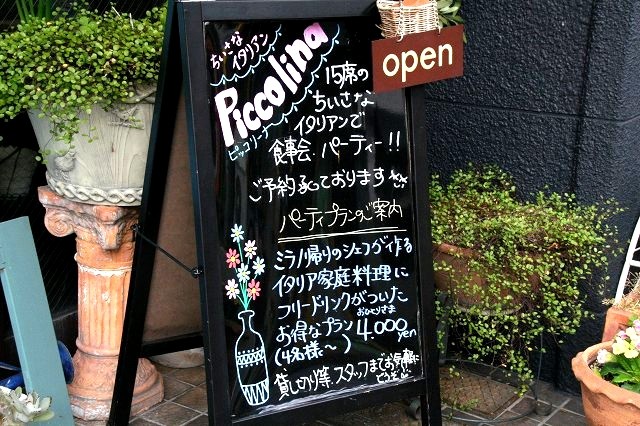 ちいさな
イタリアン
Piccolina
ピッコリーナ
open
15席の
ちいさな
イタリアンで
食事会・パーティー!!
ご予約承っております
パーティプランのご案内
ミラノ帰りのシェフが作る
イタリア家庭料理に
フリードリンクがついた
お得なプラン
おひとりさま
4.000yen
(4名様〜)
貸し切り等、スタッフまでお気軽に
どうぞ